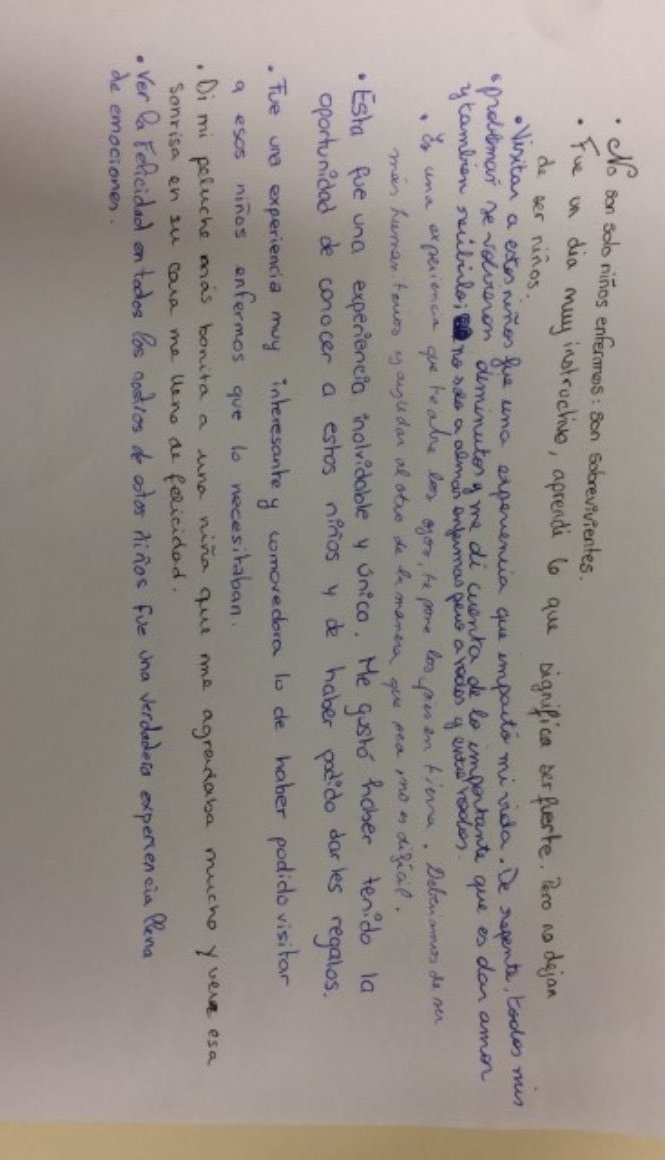 • No son solo niños enfermos: son sobrevivientes.
• Fue un dia muy instructivo, aprendi lo que significa ser fuerte. Pero no dejan
de ser niños.
• Visitar a estos niños fue una experiencia que impactó mi vida. De repente, todos mis
problemas se volvieron diminutos y me di cuenta de lo importante que es dar amor
y tambien recibirlo; no solo a almas enfermas pero a todos y entre todos.
• Es una experiencia que te abre los ojos, te pone los pies en tierra. Debemos de ser
más humanitarios y ayudar al otro de la manera que sea, no es dificil.
• Esta fue una experiencia inolvidable y única. Me gustó haber tenido la
oportunidad de conocer a estos niños y de haber podido darles regalos.
• Fue una experiencia muy interesante y comovedora lo de haber podido visitar
a esos niños enfermos que lo necesitaban.
• Di mi peluche más bonita a una niña que me agradaba mucho y ver esa
sonrisa en su cara me lleno de felicidad.
• Ver la Felicidad en todos los rostros de estos niños fue una verdadera experiencia plena
de emociones.